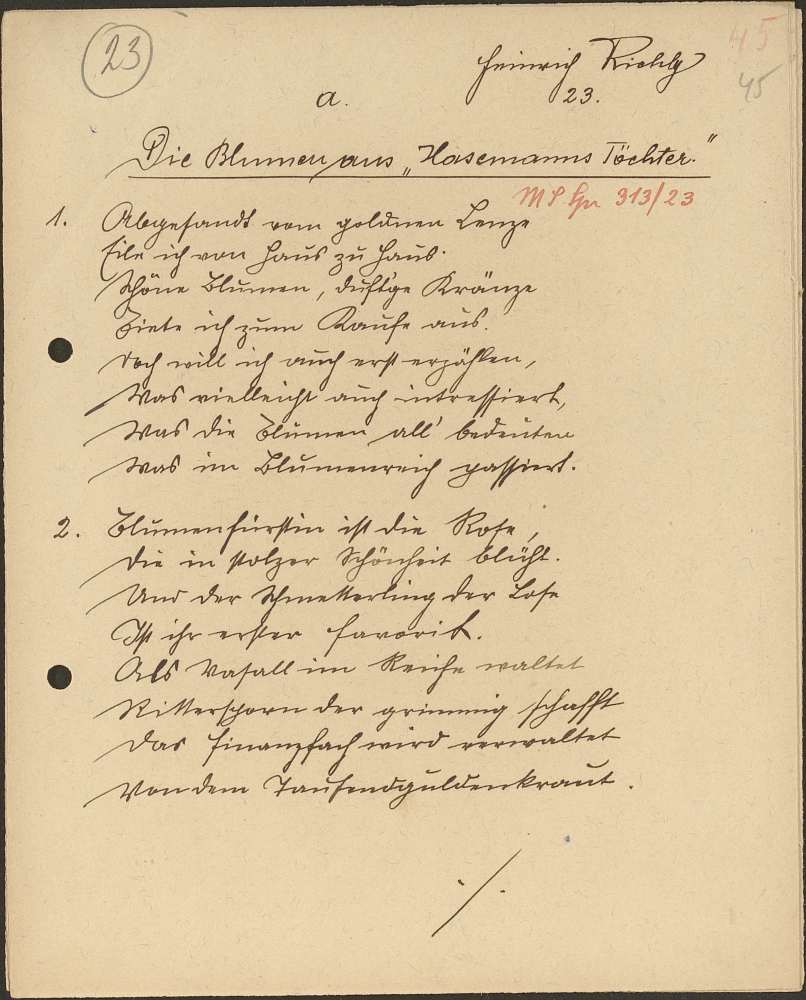 23
45
45
Heinrich
23.
a.
Die Blumen aus „Hasemanns Töchter."
313/23
1. Abgesandt vom goldnen Lenze
Eile ich von Haus zu Haus.
Schöne Blumen, duft'ge Kränze
Biete ich zum Kaufe aus.
Doch will ich auch erst erzählen,
Was vielleicht auch intressiert,
Was die Blumen all' bedeuten
Was im Blumenreich passiert.
2. Blumenfürstin ist die Rose,
Die in stolzer Schönheit blüht.
Und der Schmetterling der Lose
Ist ihr erster Favorit.
Als Vasall im Reiche waltet
Rittersporn der grimmig schafft
Das Finanzfach wird verwaltet
Von dem Tausendguldenkraut.
./.